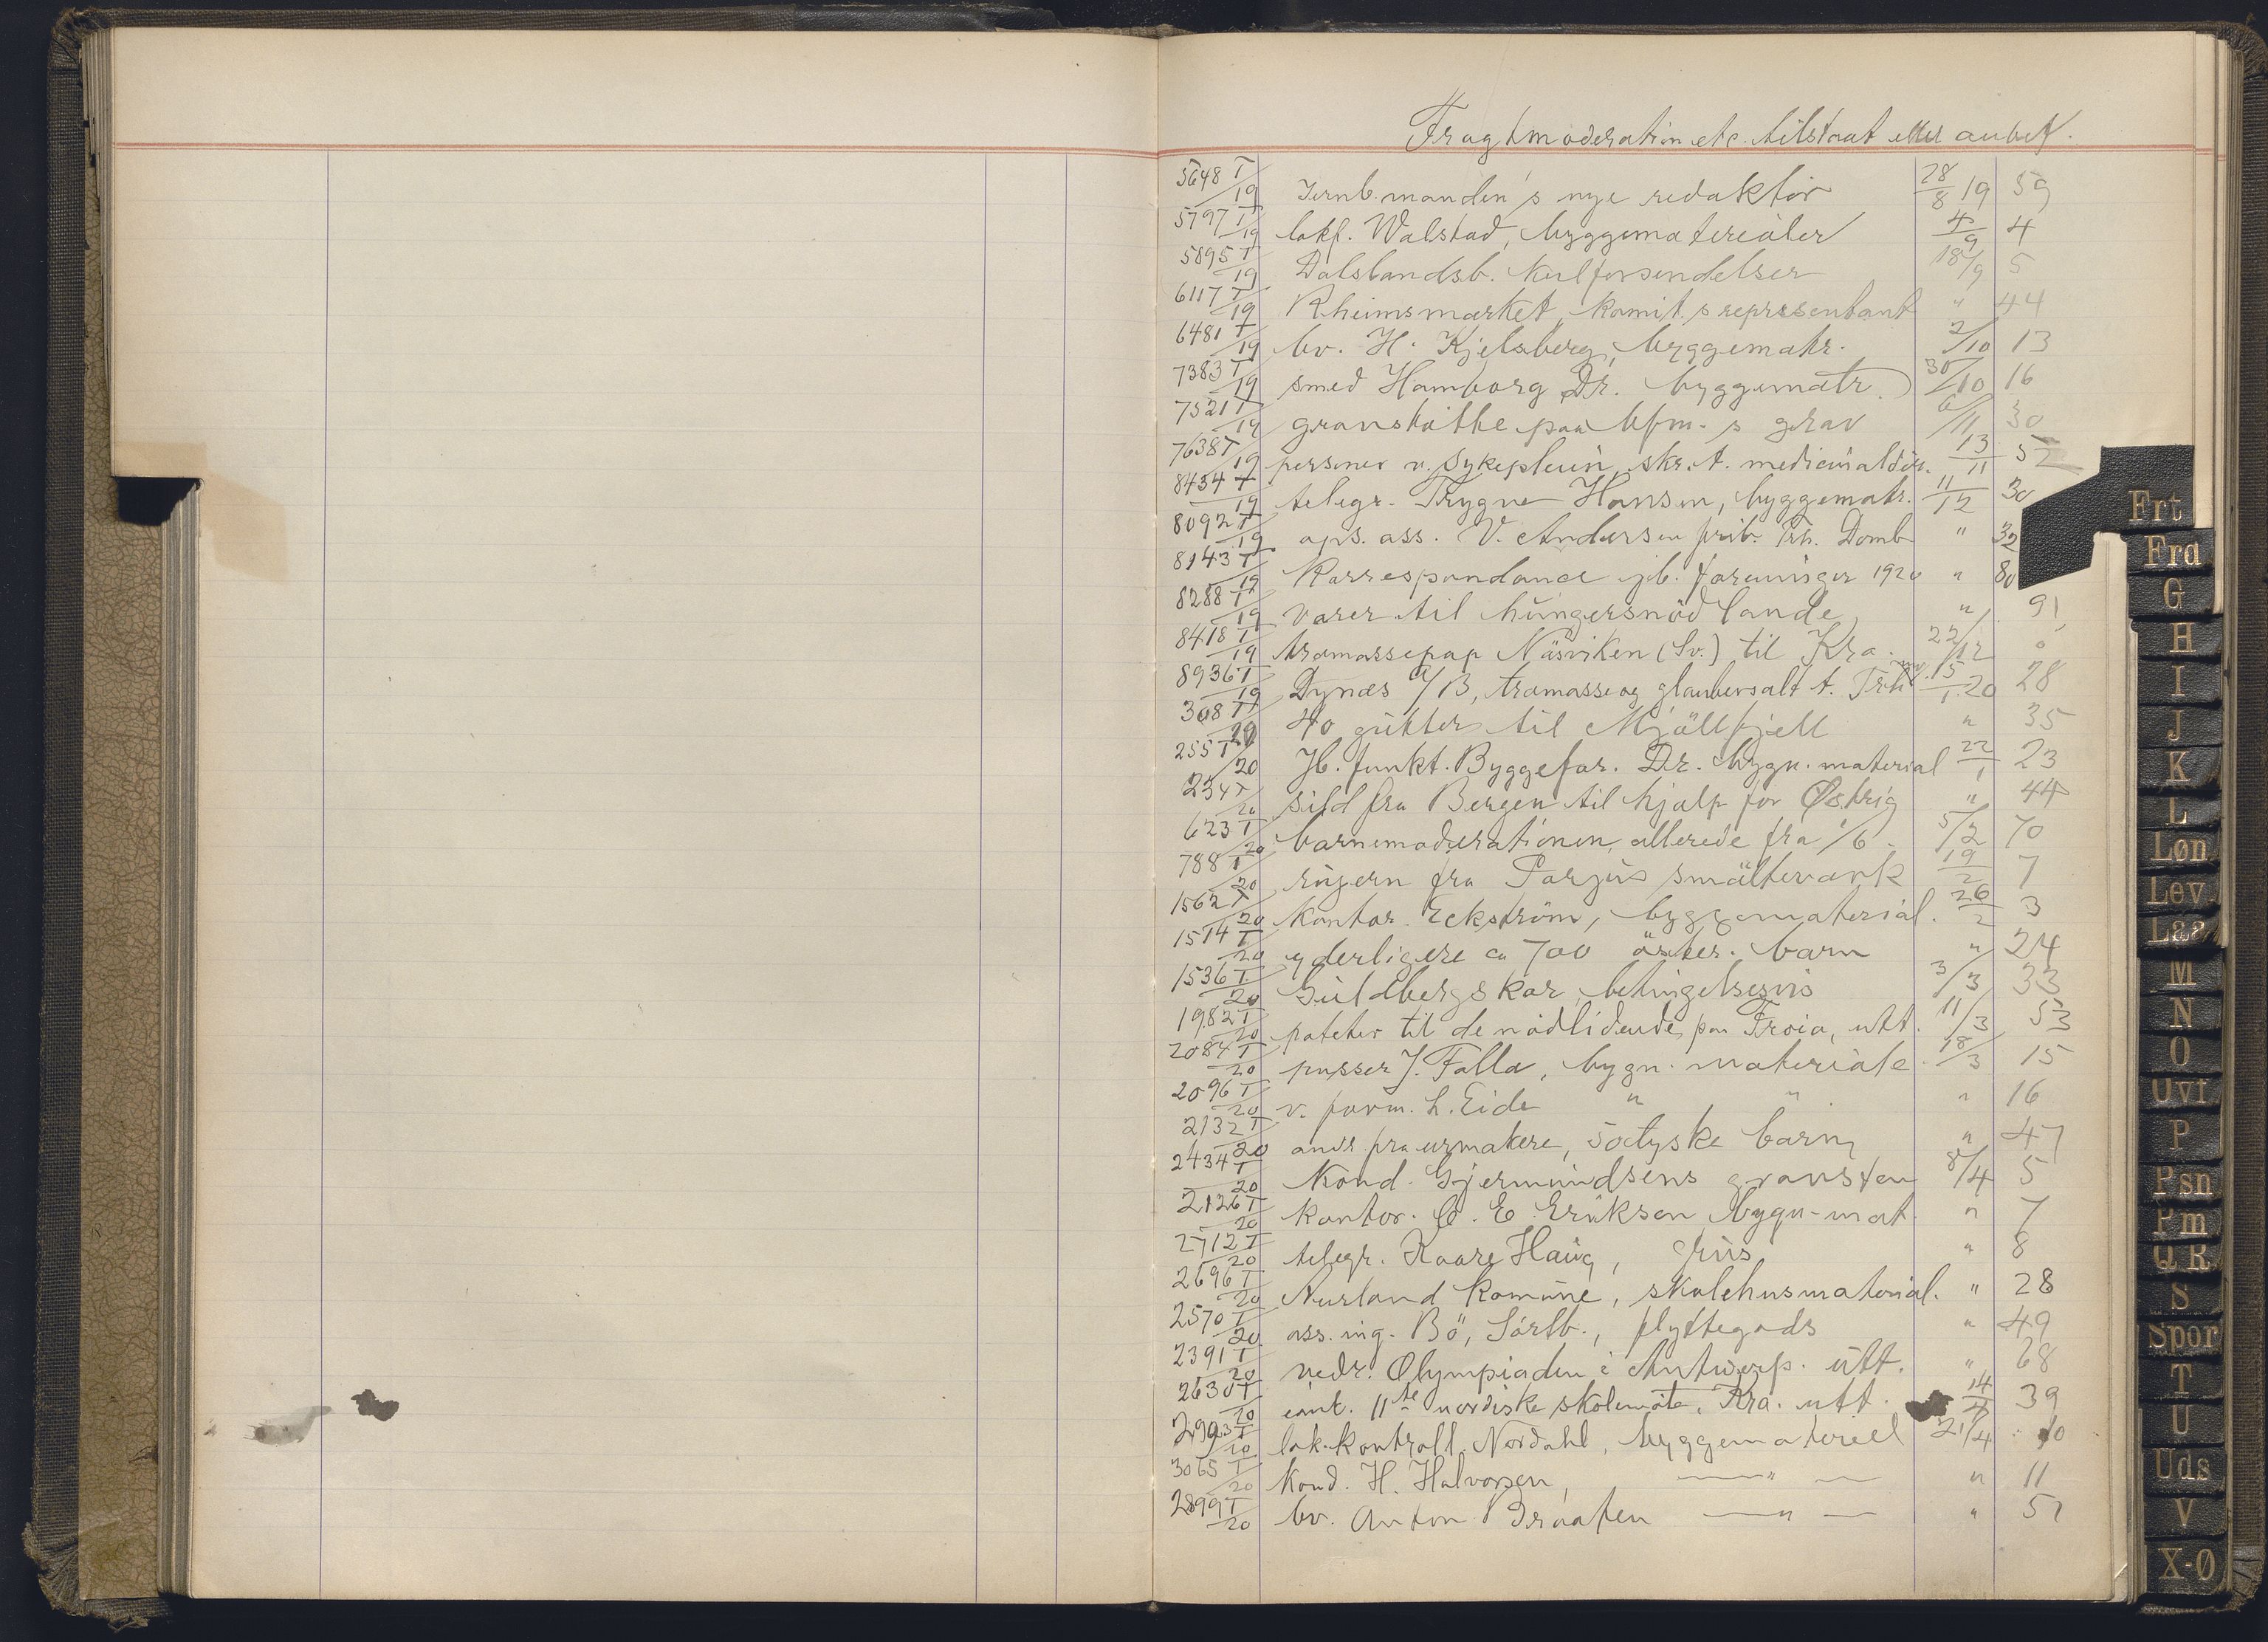 Fragtmoderation etc. tilstaat eller anbef.
5648 T/19 Jernb.manden's nye redaktør 28/8 19 59
5797 T/19 lokf. Walstad, byggematerialer 4/9 4
5895 T/19 Dalslandsb. kulforsendelser 18/9 5
6117 T/19 Rheimsmarket, komit.s representant " 44
6481 T/19 bv. H. Kjelsberg, byggematr. 2/10 13
7383 T/19 smed Hamborg Dr. byggematr. 30/10 16
7521 T/19 granstøtte paa bfm.s grav 6/11 30
7638 T/19 personer v. sykepleien, skr. t. medicinaldir. 13/11 52
8434 T/19 telegr. Trygve Hansen, byggematr. 11/12 30
8092 T/19 ops. ass. V. Andersen frib. Trh. Domb " 32
8143 T/19 Korrespondance jb. foreninger 1920 " 80
8288 T/19 varer til hungersnød lande " 91
8418 T/19 tramassepap Näsviken (Sv.) til Kra. 22/12
8936 T/19 Dynæs A/B, tramasse og glaubersalt t. Trh 15/1 20 28
308 T/20 40 gutter til Mjöllfjell " 35
255 T/20 Jb. funkt. Byggefor. Dr. bygn. material 22/1 23
234 T/20 sild fra Bergen til hjælp for Østrig " 44
623 T/20 barnemoderationen, allerede fra 1/6. 5/2 70
788 T/20 rujern fra Porjus smältevark 19/2 7
1562 T/20 kontor. Eckström, byggematerial. 26/2 3
1514 T/20 yderligere ca 700 öster. barn " 24
1536 T/20 Guldbergs kor, betingelsesvis 3/3 33
1982 T/20 poteter til de nødlidende paa Frøia, utt. 11/3 53
2084 T/20 pusser J. Falla, bygn. materiale 18/3 15
2096 T/20 v. form. L. Eide " " " 16
2132 T/20 andr fra urmakere, sødtyske barn " 47
2434 T/20 Kond. Gjermundsens gransten 8/4 5
2126 T/20 kontor. O. E. Eriksen bygn-mat. " 7
2712 T/20 telegr. Kaare Haug, grus " 8
2696 T/20 Aurland komune, skolehusmaterial. " 28
2570 T/20 ass. ing. Bö, Sørlb., flyttegods " 49
2391 T/20 vedr. Olympiaden i Antwerp. utt. " 68
2630 T/20 11te nordiske skolemøte, Kra. utt. 14/4 39
2903 T/20 lok.kontroll. Nordahl, byggemateriell 21/4 10
3065 T/20 Kond. H. Halvorsen, — " — " 11
2899 T/20 bv. Anton Braaten — " — " 51
Frt
Frd
G
H
I
J
K
L
Løn
Lev
Laa
M
N
O
Ovf
P
Psn
Pm
Q R
S
Spor
T
U
Uds
V
X-Ø